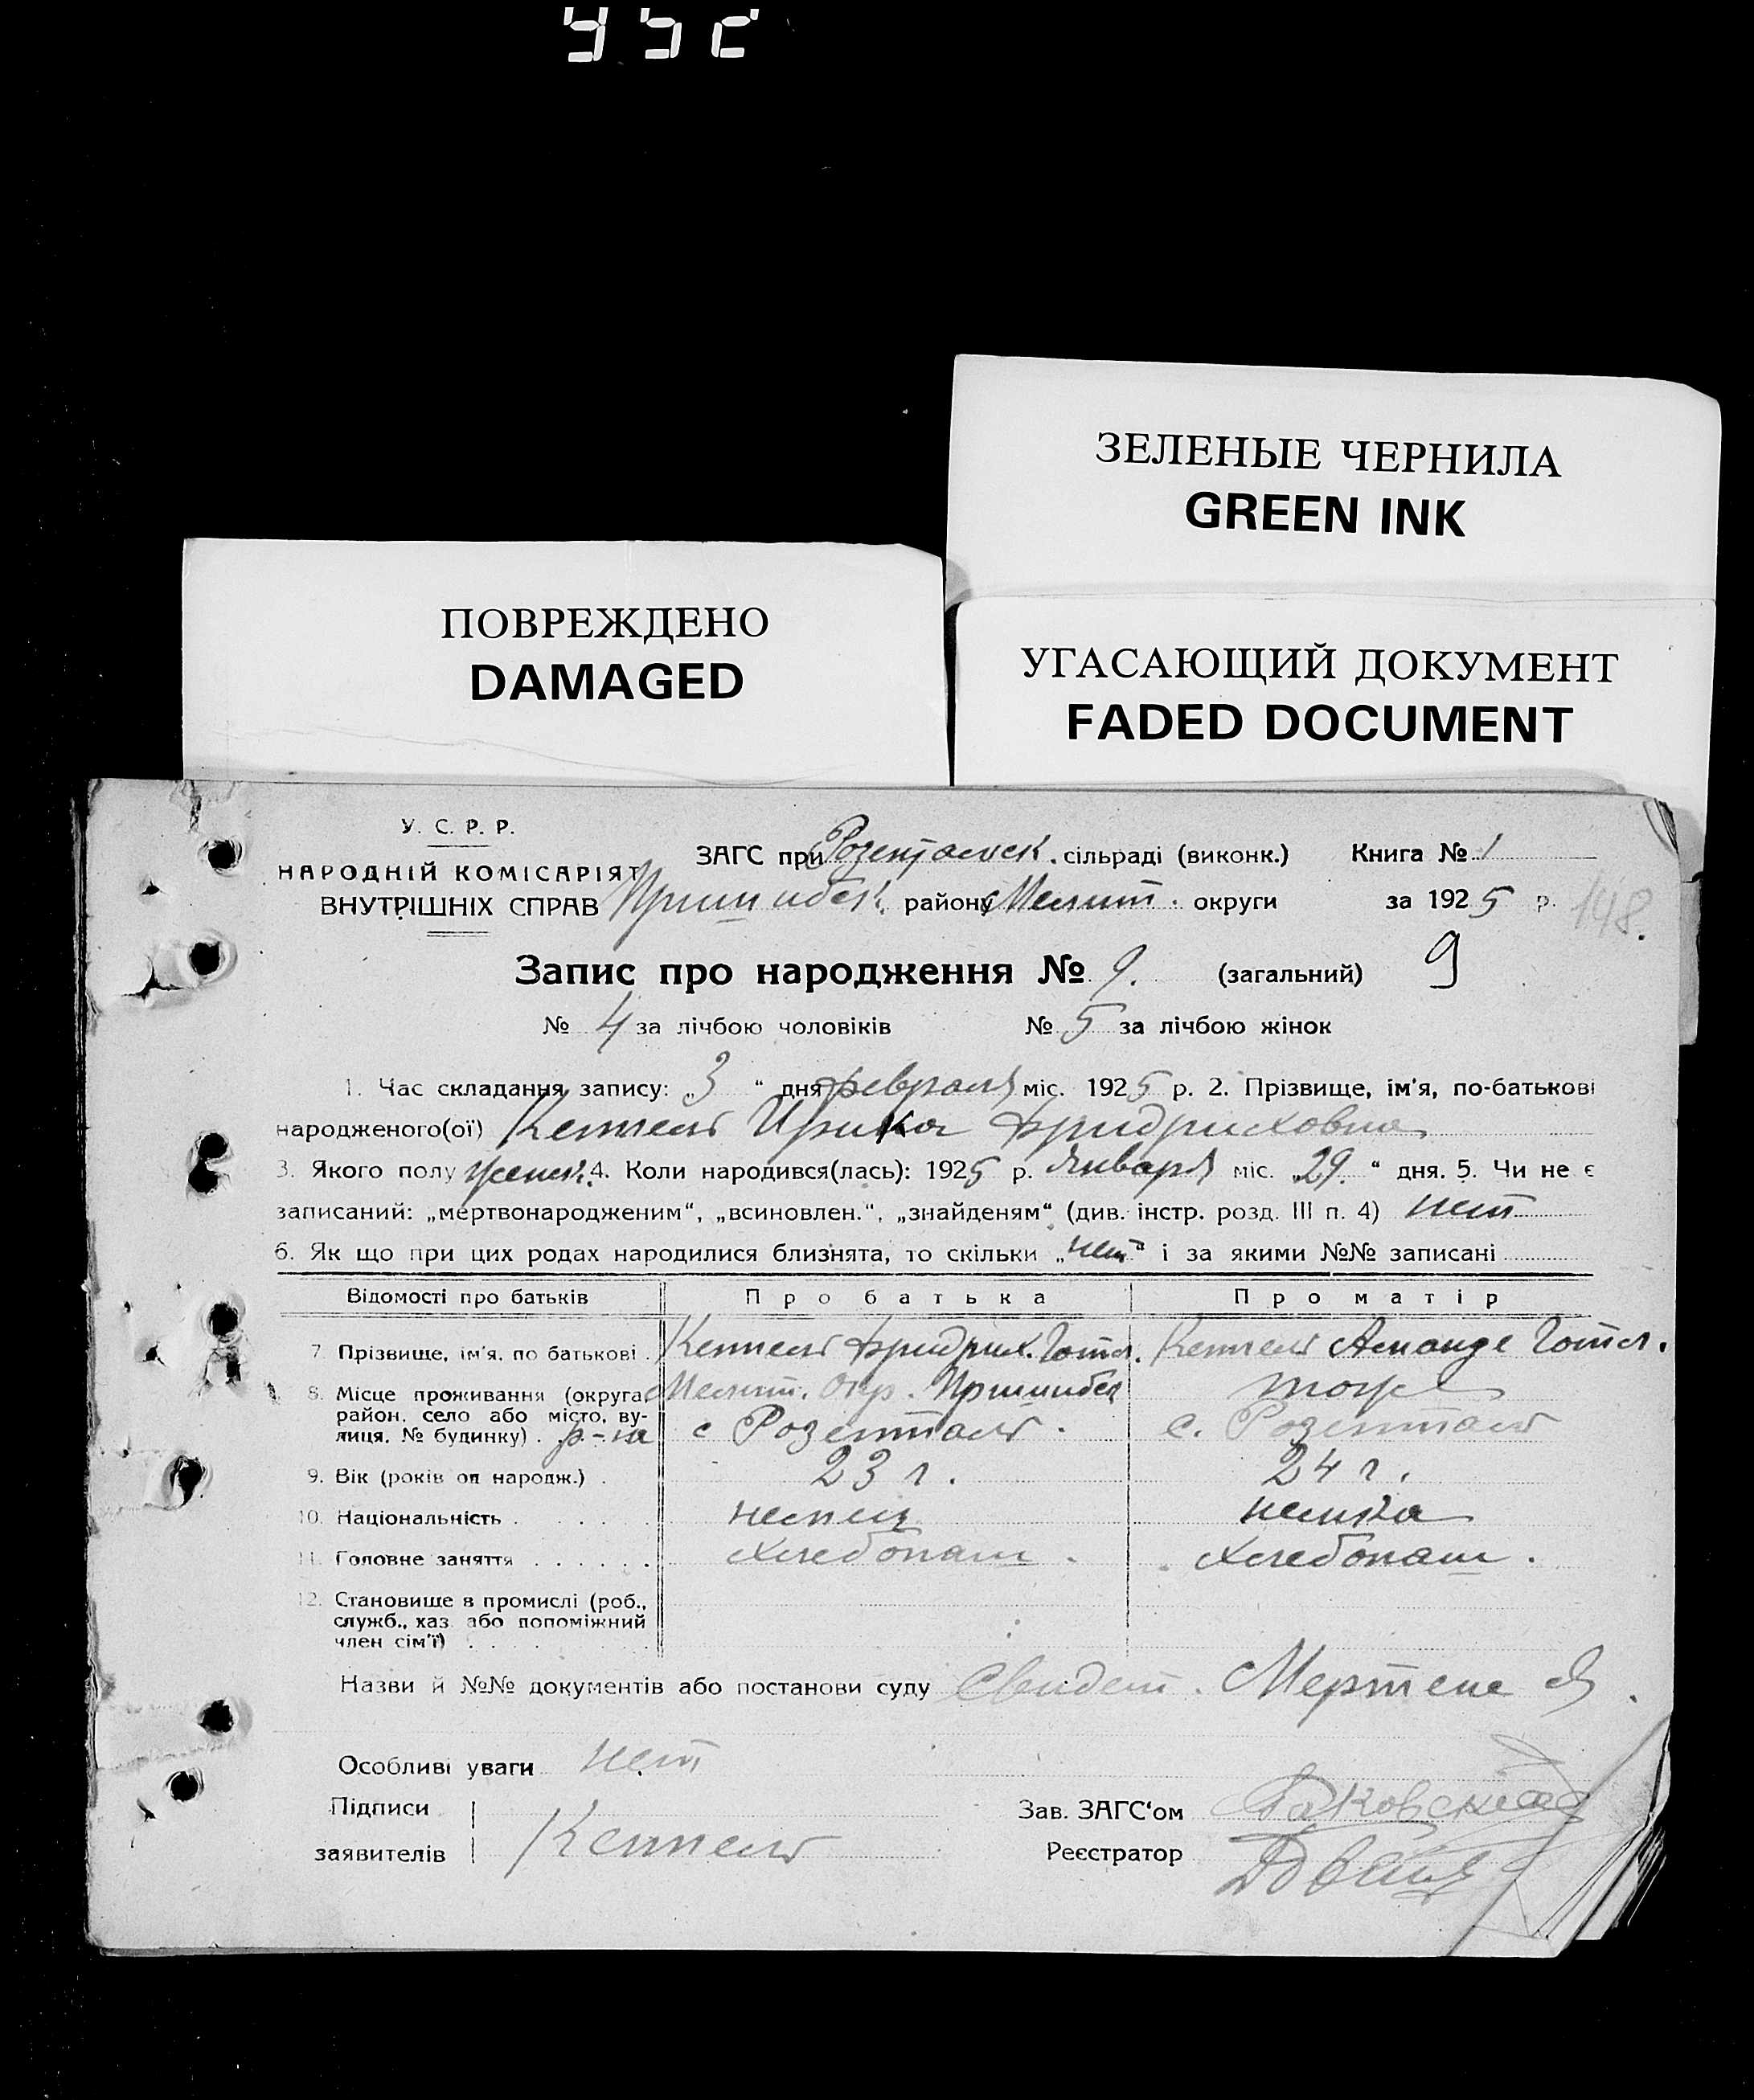 ЗЕЛЕНЫЕ ЧЕРНИЛА
GREEN INK
ПОВРЕЖДЕНО
DAMAGED
УГАСАЮЩИЙ ДОКУМЕНТ
FADED DOCUMENT
У. С. Р. Р.
НАРОДНІЙ КОМІСАРІЯТ
ВНУТРІШНІХ СПРАВ
ЗАГС при Розентальск. сільраді (виконк.) Книга № 1
Пришибск. району Мелит. округи за 1925 р.
148.
Запис про народження № 9. (загальний) 9
№ 4 за лічбою чоловіків № 5 за лічбою жінок
1. Час складання запису: „3“ дня февраля міс. 1925 р. 2. Прізвище, ім'я, по-батькові
народженого(ої) Кеппель Ирика Фридриховна
3. Якого полу женск. 4. Коли народився(лась): 1925 р. Января міс. „29.“ дня. 5. Чи не є
записаний: „мертвонародженим“, „всиновлен.“, „знайденям“ (див. інстр. розд. III п. 4) нет
6. Як що при цих родах народилися близнята, то скільки „нет“ і за якими №№ записані
Відомості про батьків Про батька Про матір
7. Прізвище, ім'я, по батькові Кеппель Фридрих. Готл. Кеппель Аманде Готл.
8. Місце проживання (округа, Мелит. Окр. Пришибск тоже
район, село або місто, ву-
лиця, № будинку) р-на с Розенталь. с. Розенталь
9. Вік (років од народж.) 23 г. 24 г.
10. Національність немец немка
11. Головне заняття Хлебопаш. Хлебопаш.
12. Становище в промислі (роб.,
служб., хаз. або допоміжний
член сім'ї)
Назви й №№ документів або постанови суду Свидет. Мертенс Я.
Особливі уваги нет
Підписи
заявителів Кеппель
Зав. ЗАГС'ом
Реєстратор